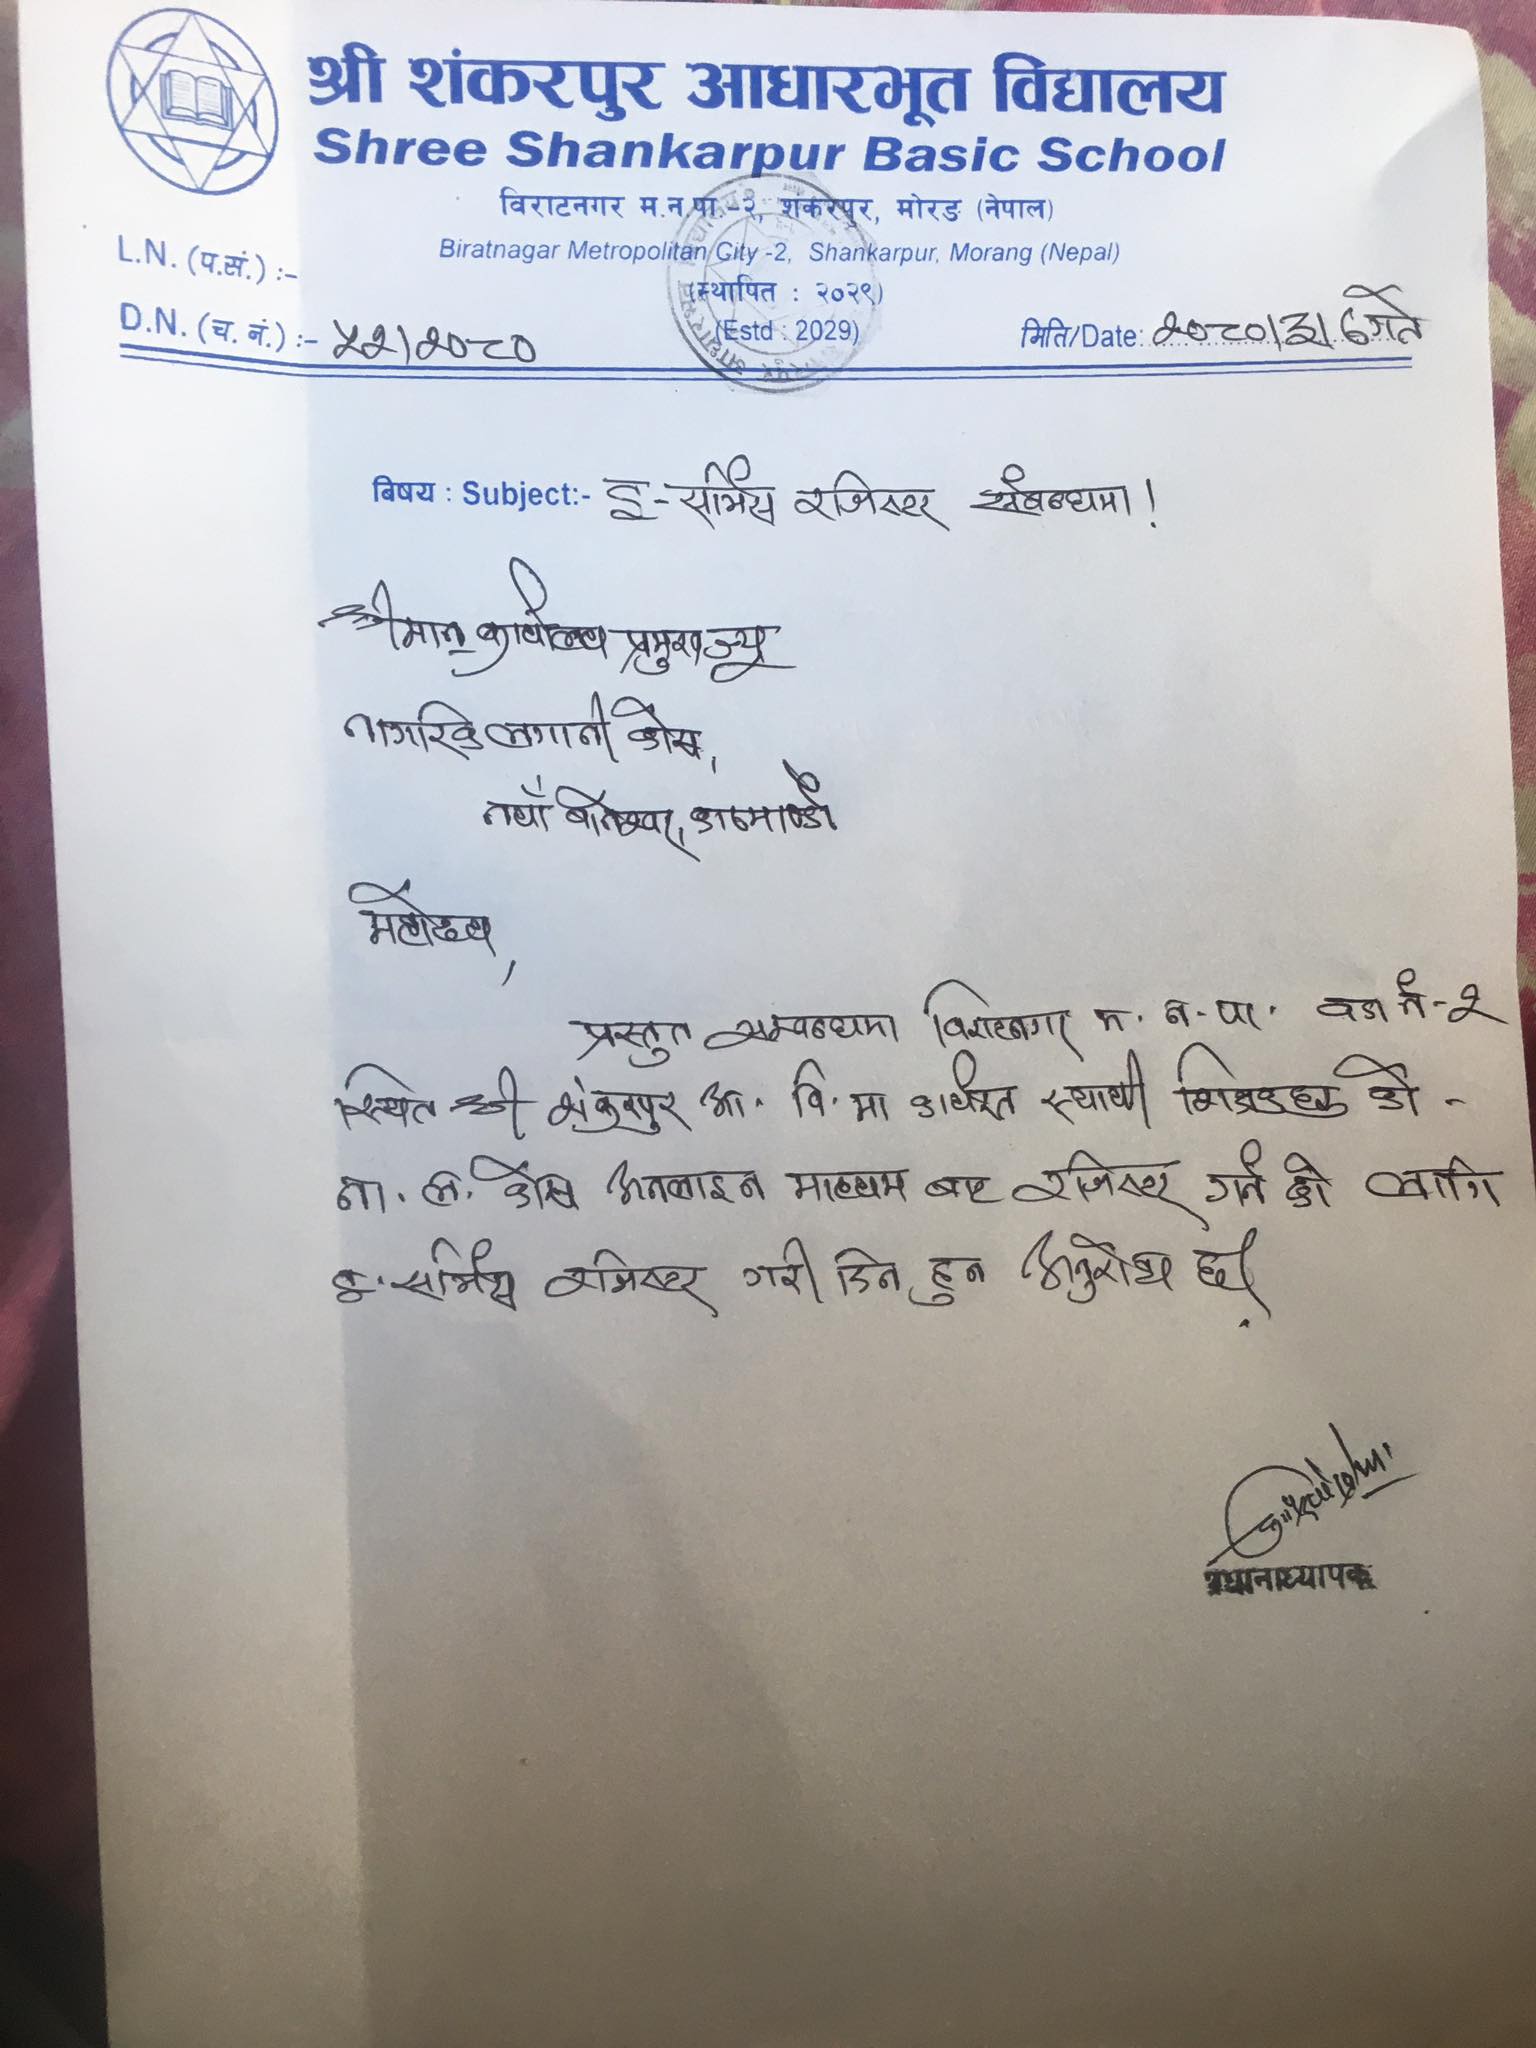 श्री शंकरपुर आधारभूत विद्यालय
Shree Shankarpur Basic School
विराटनगर म.न.पा.-२, शंकरपुर, मोरङ (नेपाल)
Biratnagar Metropolitan City -2, Shankarpur, Morang (Nepal)
L.N. (प.सं.) :-
(स्थापित : २०२९)
D.N. (च. नं.) :- ५२/२०८०
(Estd : 2029)
मिति/Date: २०८०/३/६ गते
बिषय : Subject:- इ-सर्भिस रजिस्टर संबन्धमा!
श्रीमान् कार्यालय प्रमुखज्यू
नागरिक लगानी कोष,
नयाँ बानेश्वर, काठमाण्डौ
महोदय,
प्रस्तुत सम्बन्धमा विराटनगर म. न. पा. वडा नं-२
स्थित श्री शंकरपुर आ. वि. मा कार्यरत स्थायी शिक्षकहरु को -
ना. ल. कोष अनलाइन माध्यम बाट रजिस्टर गर्न को लागि
इ-सर्भिस रजिस्टर गरी दिनु हुन अनुरोध छ।
प्रधानाध्यापक